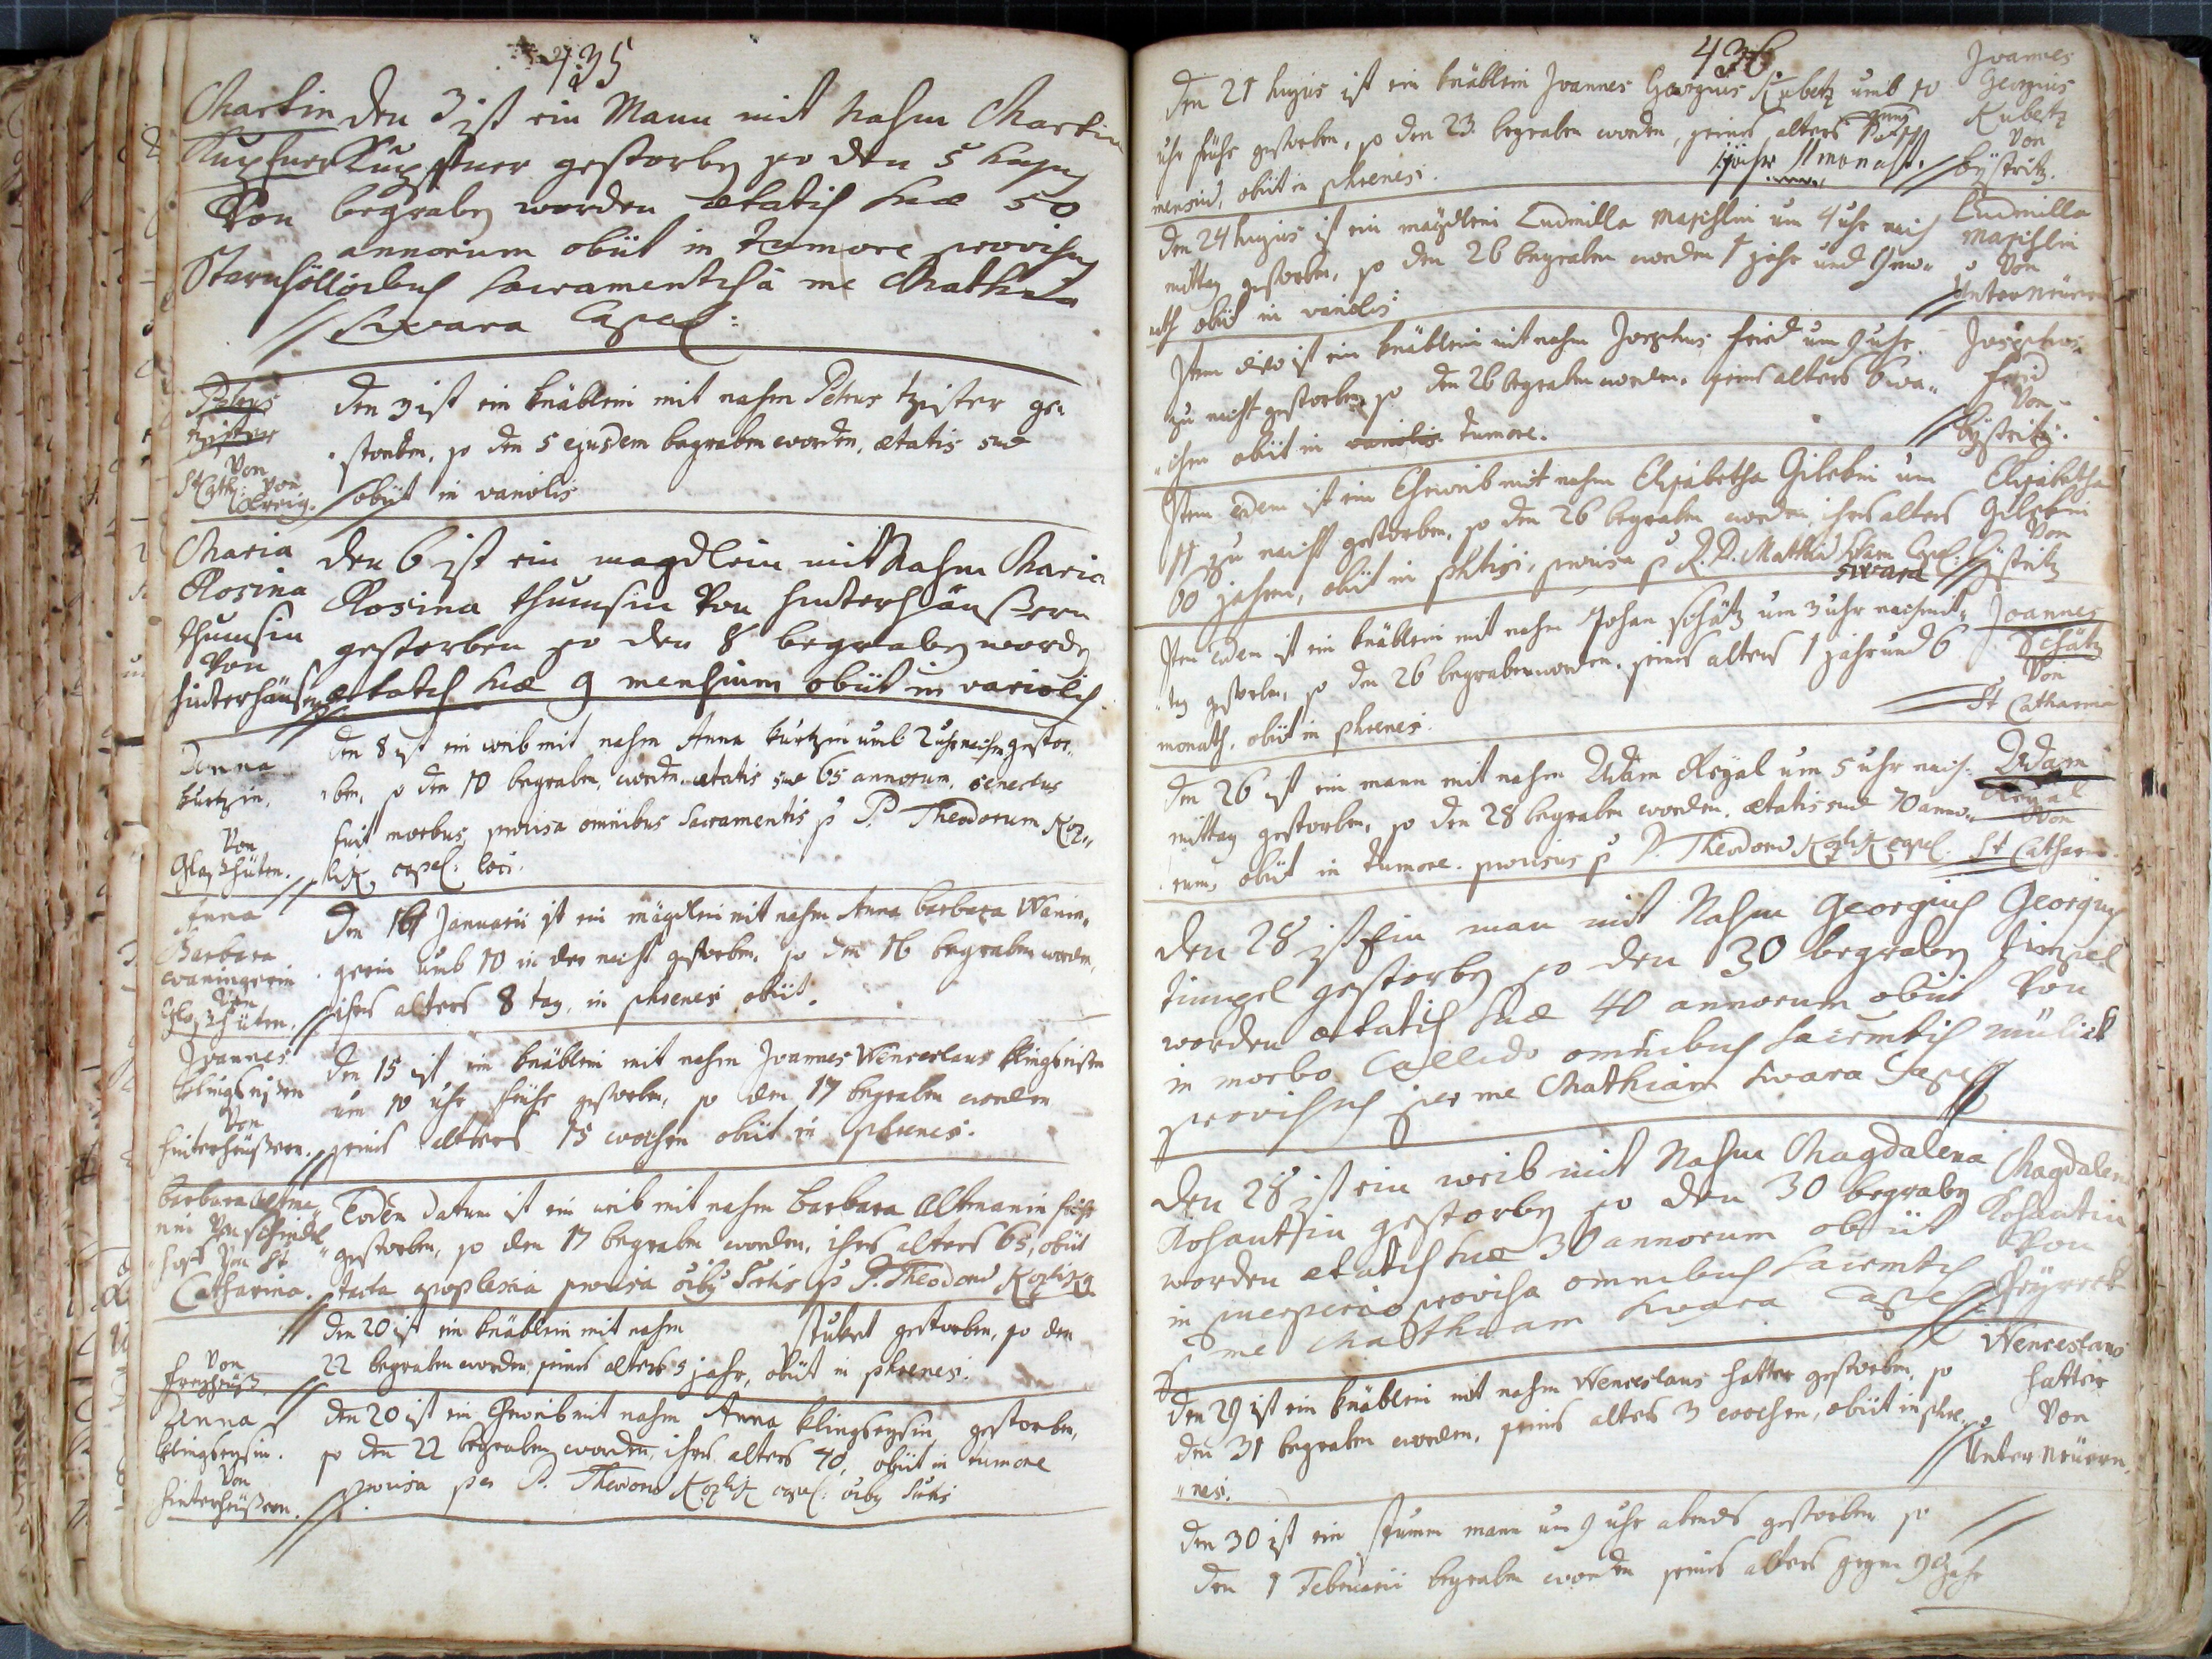 435
Martin den 3 ist ein Mann mit Nahm Martin
Kupfner Kupfner gestorben so den 5 hujus
Von begraben worden ætatis suæ 50
annorum obiit in tumore provisus
Sternhöf omnibus sacramentis à me Mathia
Swara Capel:
Petrus den 3 ist ein knäblein mit nahm Petrus tzister ge=
tzister storben, so den 5 ejusdem begraben worden, ætatis suæ
Von
St Cath: Von
obiit in variolis
Maria den 6 ist ein magdlein mit Nahm Maria
Rosina Rosina thumsin Von hinterhäußern
thumsin gestorben so den 8 begraben worden
Von
hinterhäusern ætatis suæ 9 mensium obiit in variolis
Anna den 8 ist ein weib mit nahm Anna kurtzin umb 2 uhr nachm gestor=
kurtzin. ben, so den 10 begraben worden ætatis suæ 65 annorum, senectus
Von fuit morbus, provisa omnibus Sacramentis p P. Theodorum Koz=
Glaßhüten. lik, capel: loci.
Anna den 14 Januarii ist ein mägdlein mit nahm Anna barbara Wanin=
Barbara gerin umb 10 in der nacht gestorben, so den 16 begraben worden,
waningerin ihres alters 8 tag, in phrenesi obiit.
Von
Glaßhüten.
Joannes den 15 ist ein knäblein mit nahm Joannes Wenceslaus klingseisen
klingseisen um 10 uhr frühe gestorben, so den 17 begraben worden
Von
hinterheüßern. seines alters 15 wochen obiit in phrenesi.
barbara altma= Eodem Datum ist ein weib mit nahm barbara Altmanin frühe
nin Von schindl= gestorben, so den 17 begraben worden, ihres alters 65, obiit
hof Von St
Catharina. tacta apoplexia provisa oibus Sctis p P. Theodoro Kozlik
den 20 ist ein knäblein mit nahm stuket gestorben, so den
Von 22 begraben worden, seines alters 5 jahr, obiit in phrenesi.
Anna den 20 ist ein Eheweib mit nahm Anna klingseysin gestorben,
klingseysin. so den 22 begraben worden, ihres alters 40, obiit in tumore
Von
hinterheüßern. provisa per P. Theodoro Kozlik capel: oibus Sctis
436
den 21 hujus ist ein knäblein Joannes Georgius Kubetz umb 10 Joannes
uhr frühe gestorben, so den 23 begraben worden, seines alters Georgius
1 jahr 11 monath. Kubetz
mensium, obiit in phrenesi. Von
bÿstritz.
den 24 hujus ist ein mägdlein Ludmilla maschlin um 4 uhr nach Ludmilla
mittag gestorben, so den 26 begraben worden 1 jahr und 9 mo= maschlin
nath obiit in variolis Von
Unterneürn
Item dito ist ein knäblein mit nahm Josephus feid um 9 uhr Josephus
zu nacht gestorben, so den 26 begraben worden, seines alters 6 wo= feid
chen obiit in variolis tumore. Von
bÿstritz.
Item eodem ist ein Eheweib mit nahm Elisabetha Gilekin um Elisabetha
11 zu nacht gestorben, so den 26 begraben worden, ihres alters Gilekin
60 jahren, obiit in phtisi, provisa p R. D. Mathia Swara Capel: Von
bÿstritz
Item eodem ist ein knäblein mit nahm Johan schätz um 3 uhr nachmit= Joannes
tag gestorben, so den 26 begraben worden, seines alters 1 jahr und 6 Schätz
monath, obiit in phrenesi. Von
St Catharina
den 26 ist ein mann mit nahm Adam Rejal um 5 uhr nach= Adam
mittag gestorben, so den 28 begraben worden, ætatis suæ 70 anno= Rejal
Von
rum, obiit in tumore. provisus p P. Theodoro Kozlik capel. St Catharin.
den 28 ist Ein man mit Nahm Georgius Georgius
timpel gestorben so den 30 begraben timpel
worden ætatis suæ 40 annorum obiit Von
in morbo Callido omnibus sacrmtis müliek
provisus per me Mathiam Swara Capel
den 28 ist ein weib mit Nahm Magdalena Magdalena
Kohautin gestorben so den 30 begraben Kohautin
worden ætatis suæ 30 annorum obiit Von
in puerperio provisa omnibus sacrmtis
p me Mathiam Swara Capel
den 29 ist ein knäblein mit nahm Wenceslaus hatter gestorben, so Wenceslaus
den 31 begraben worden, seines alters 3 wochen, obiit in phre= hatter
nesi. Von
Unterneüern.
den 30 ist ein stumm mann um 9 uhr abends gestorben so
den 1 Februarii begraben worden seines alters gegen 90 jahr